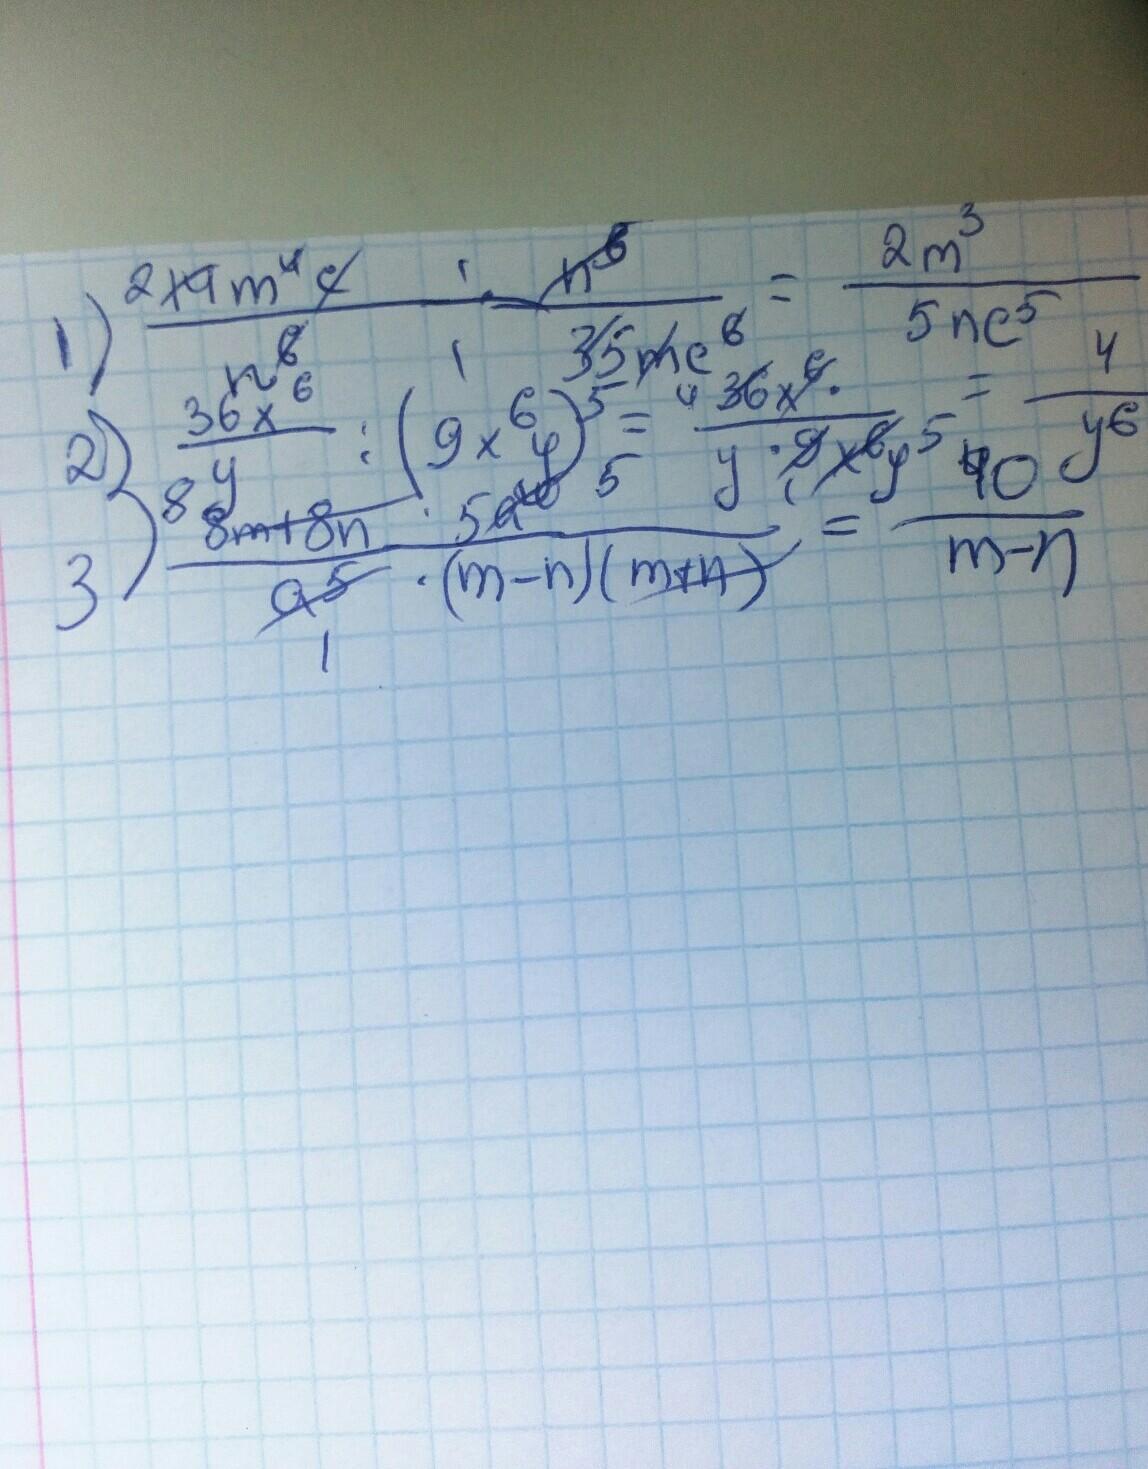 1) 2 14m⁴c / n⁶ · n⁵ / 35mc⁶ = 2m³ / 5nc⁵
2) 36x⁶ / y : (9x⁶y⁵) = 4 36x⁶ / y · 9x⁶y⁵ = 4 / y⁶
3) 8 8m+8n · 5 / a⁵ · (m-n)(m+n) = 40 / m-n